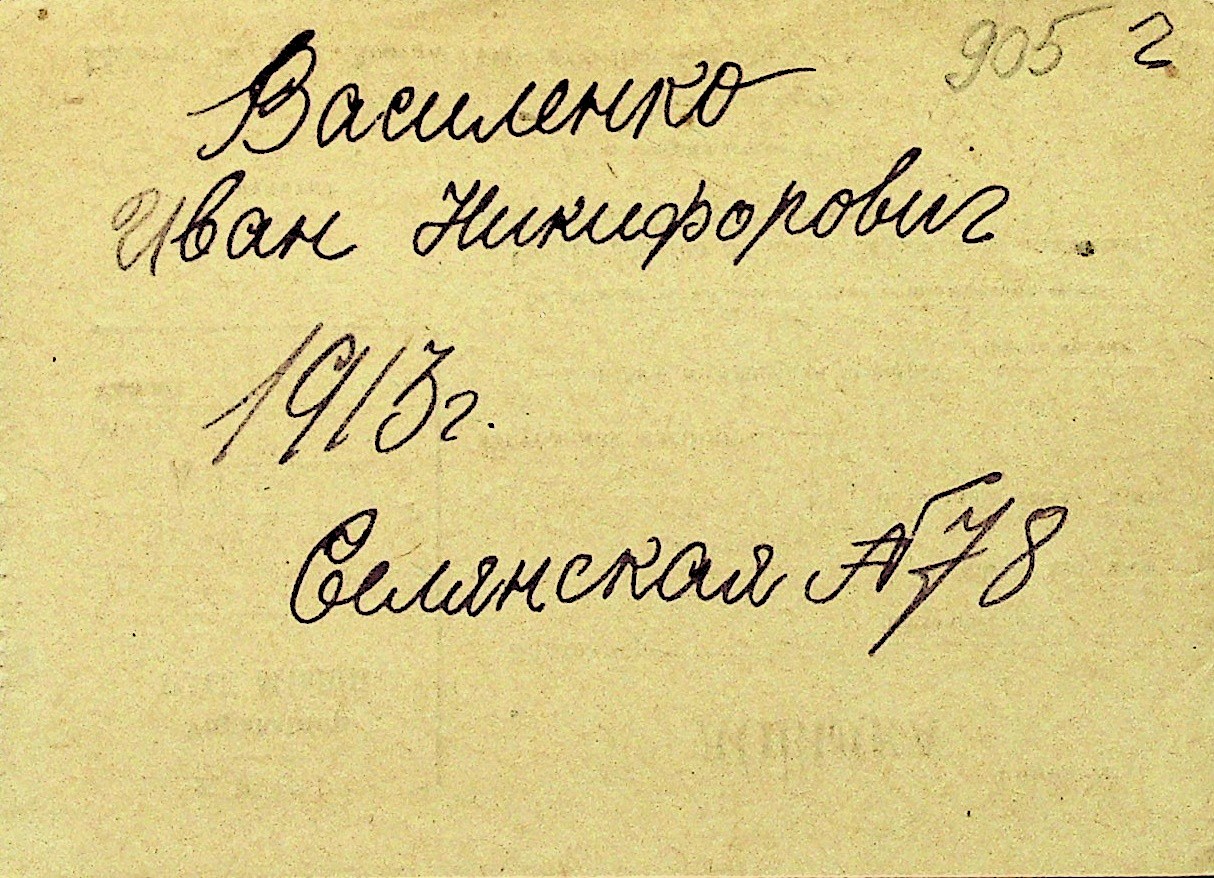 905 г
Василенко
Иван Никифорович
1913 г.
Селянская №78